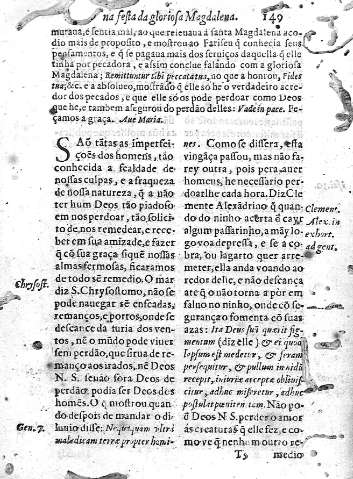 na festa da gloriosa Magdalena. 149
muraua, e sentia mal, ao que releuaua á santa Magdalena aco
dio mais de proposito, e mostrou ao Fariseu q̃ conhecia seus
pensamentos, e q̃ se pagaua mais dos seruiços daquella q̃ elle
tinha por pecadora, e assim conclue falando com a gloriosa
Magdalena; Remittuntur tibi peccata tua, no que a honrou, Fides
tua, &c. e a absolueo, mostrãdo q̃ elle só he o verdadeiro acre-
dor dos pecados, e que elle só os pode perdoar como Deos
que he, e tambem asegurou do perdão delles: Vade in pace. Pe-
çamos a graça. Aue Maria.
SAõ tãtas as imperfei-
ções dos homens, tão
conhecida a fealdade de
nossas culpas, e a fraqueza
de nossa natureza, q̃ a não
ter hum Deos tão piadoso
em nos perdoar, tão solici-
to de nos remedear, e rece-
ber em sua amizade, e fazer
q̃ cõ sua graça fique nossas
almas fermosas, ficaramos
de todo sẽ remedio. O mar
diz S. Chrysostomo, não se
pode nauegar sẽ enseadas,
remanços, e portos, onde se
descance da furia dos ven-
tos, nẽ o mũdo pode viuer
sem perdão, que sirua de re-
manço aos irados, nẽ Deos
N. S. senão fora Deos de
perdão podia ser Deos dos
homẽs. O q̃ mostrou quan-
do despois de mandar o di-
luuio disse: Nequaquam vltra
maledicam terræ propter homi-
Chrysost.
Gen. 7.
nes. Como se dissera, esta
vingãça passou, mas não fa-
rey outra, pois pera auer
homens, he necessario per-
doarlhe cada hora. Diz Cle
mente Alexãdrino q̃ quan-
do do ninho acerta ẽ cayr
algum passarinho, a mãy lo-
go voa depressa, e se a co-
bra, ou lagarto quer arre-
meter, ella anda voando ao
redor delle, e não descança
atè q̃ o não torna a pòr em
saluo no ninho, onde cõ se-
gurança o fomenta cõ suas
azas: Ita Deus suũ quærit fig-
mentum (diz elle) & ei quod
lapsum est medetur, & feram
persequitur, & pullum in nidũ
recepit, iniuriæ acceptæ obliuis-
citur, adhuc miseretur, adhuc
postulat pœnitentiam. Não po-
ẽ Deos N. S. perder o amor
ás creaturas q̃ elle fez, e co-
mo ve q̃ nenhum outro re-
Clement.
Alex. in
exhort.
ad gent.
T 5 medio